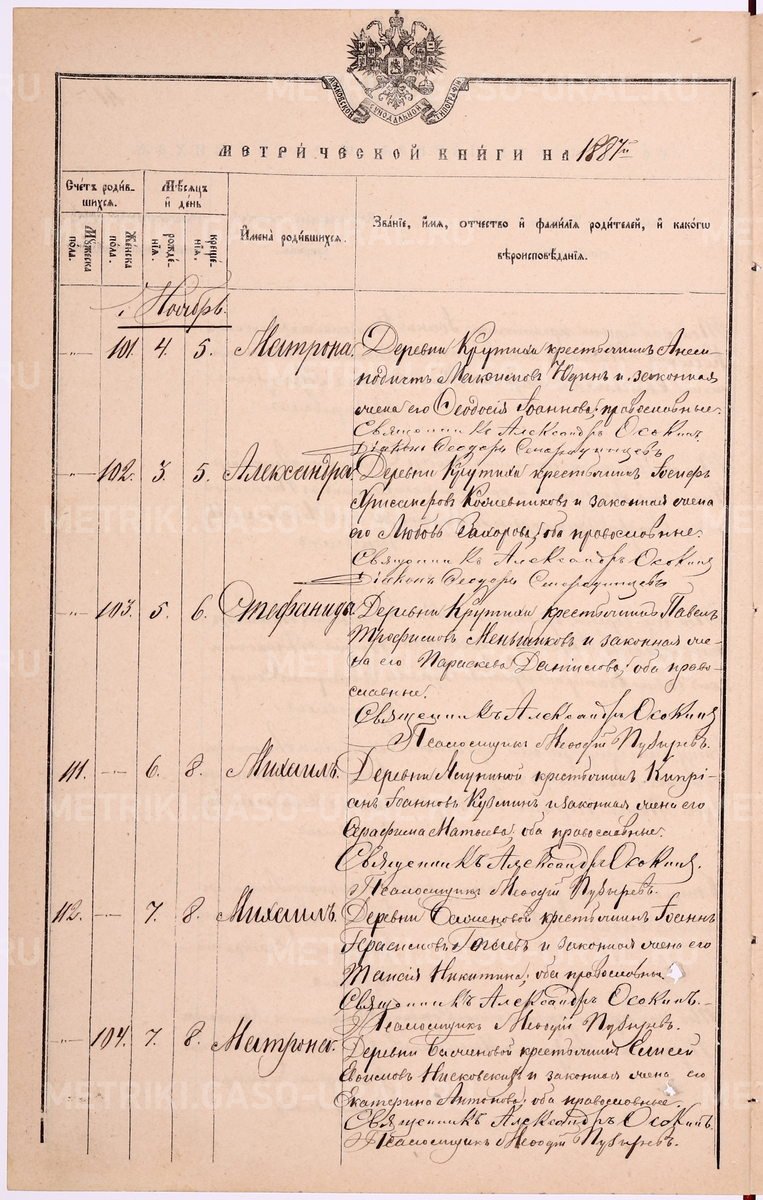 МОСКОВСКОЙ СѴНОДАЛЬНОЙ ТИПОГРАФІИ
МЕТРИ́ЧЕСКОЙ КНИ́ГИ НА 1887й
Сче́тъ роди́в-
шихся.
Мѣ́сяцъ
и҆ де́нь
И҆мена̀ роди́вшихся.
Зва́нїе, и҆́мя, ѻ҆́тчество и҆ фами́лїя роди́телей, и҆ како́гѡ
вѣроисповѣ́данїя.
Мꙋ́жеска
по́ла.
Же́нска
по́ла.
рожде́-
нїя.
креще́-
нїя.
Ноябрь.
" 101. 4. 5. Матрона. Деревни Крутихи крестьянинъ
Максимовъ и законная
жена его Ѳеодосія Іоаннова, православные.
Священникъ Александръ Осокинъ
Діаконъ Ѳеодоръ
" 102. 3. 5. Александра. Деревни Крутихи крестьянинъ Іосифъ
Хрисанфовъ Кожевниковъ и законная жена
его Любовь Захарова, оба православные.
Священникъ Александръ Осокинъ
Діаконъ Ѳеодоръ
" 103. 5. 6. Стефанида. Деревни Крутихи крестьянинъ Павелъ
Трофимовъ Меньшиковъ и законная же-
на его Параскева Даниилова, оба право-
славные.
Священникъ Александръ Осокинъ
Псаломщикъ Меѳодій Пузыревъ.
111. — 6. 8. Михаилъ. Деревни крестьянинъ Кипрі-
анъ Іоанновъ Кузминъ и законная жена его
Серафима Матѳеева, оба православные.
Священникъ Александръ Осокинъ.
Псаломщикъ Меѳодій Пузыревъ.
112. — 7. 8. Михаилъ. Деревни крестьянинъ Іоаннъ
Герасимовъ и законная жена его
Таисія Никитина, оба православны
Священникъ Александръ Осокинъ.
Псаломщикъ Меѳодій Пузыревъ.
" 104. 7. 8. Матрона. Деревни крестьянинъ Елисей
и законная жена его
Екатерина Антонова, оба православные.
Священникъ Александръ Осокинъ.
Псаломщикъ Меѳодій Пузыревъ.